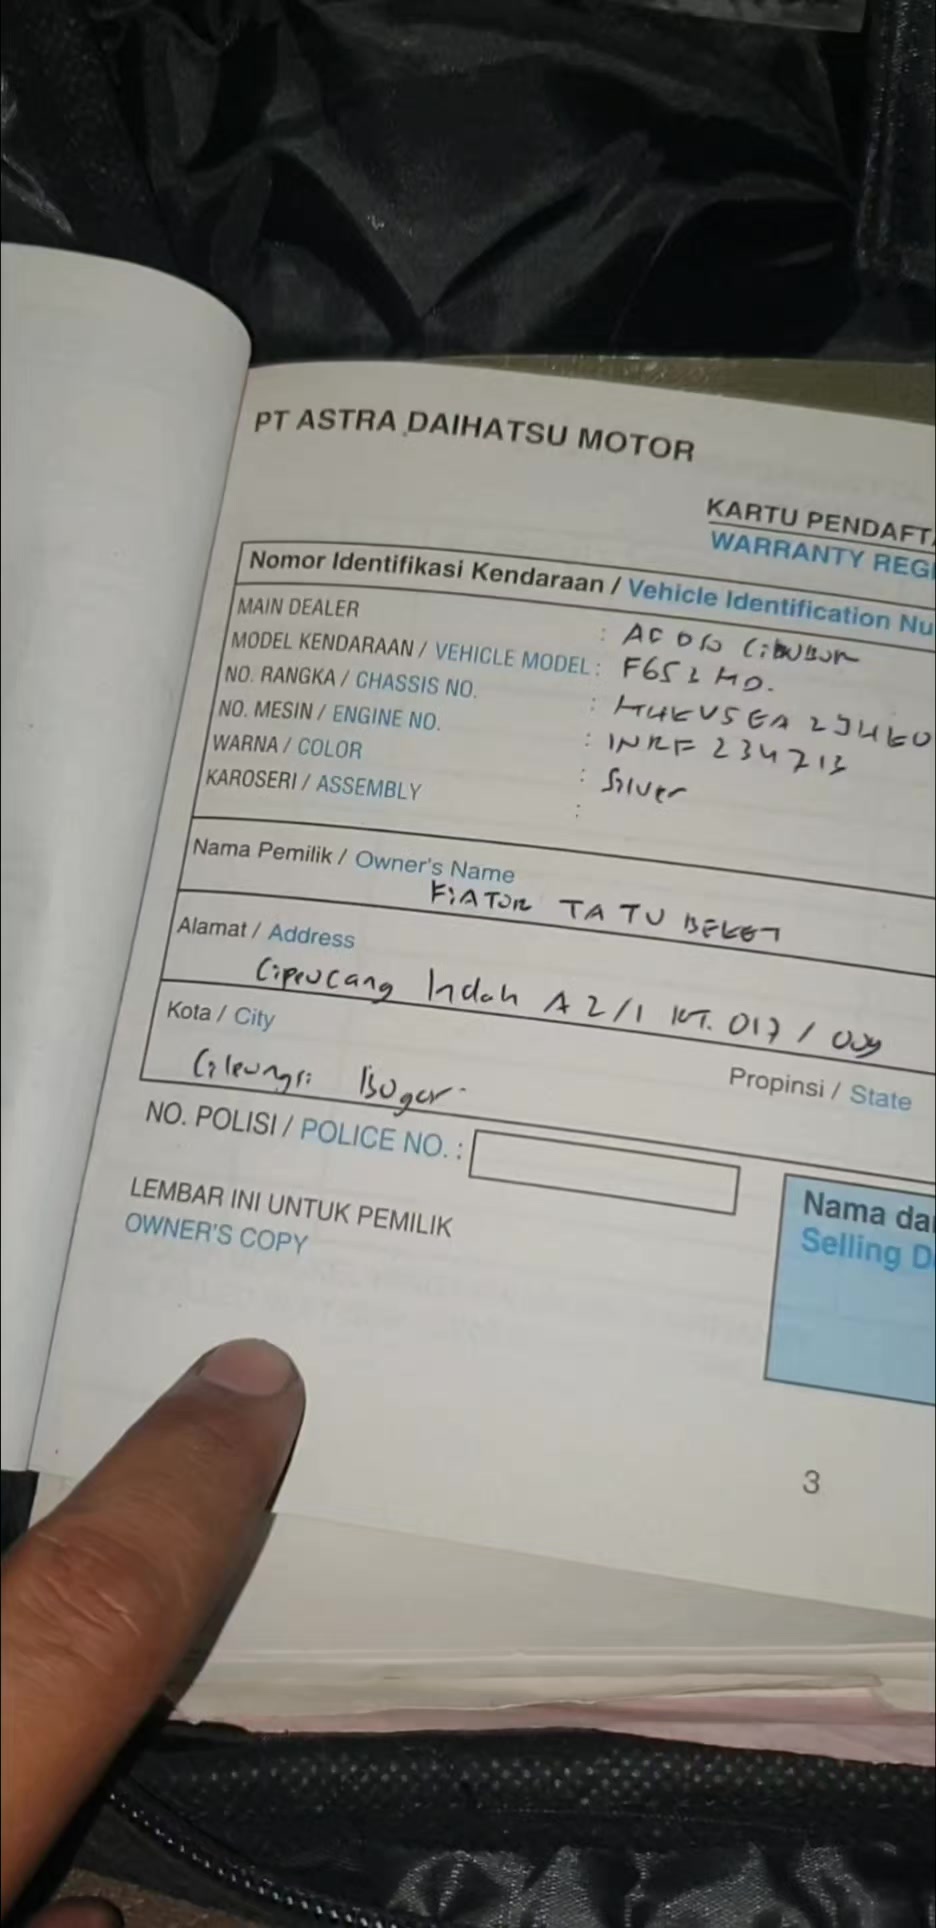 PT ASTRA DAIHATSU MOTOR
KARTU PENDAFTA
WARRANTY REGI
Nomor Identifikasi Kendaraan / Vehicle Identification Nu
MAIN DEALER : Cibubur
MODEL KENDARAAN / VEHICLE MODEL :
NO. RANGKA / CHASSIS NO. :
NO. MESIN / ENGINE NO. :
WARNA / COLOR : Silver
KAROSERI / ASSEMBLY :
Nama Pemilik / Owner's Name
TATU
Alamat / Address
Cipeucang Indah A2/1 RT. 017 / 009
Kota / City
Cileungsi Bogor
Propinsi / State
NO. POLISI / POLICE NO. :
LEMBAR INI UNTUK PEMILIK
OWNER'S COPY
Nama da
Selling D
3